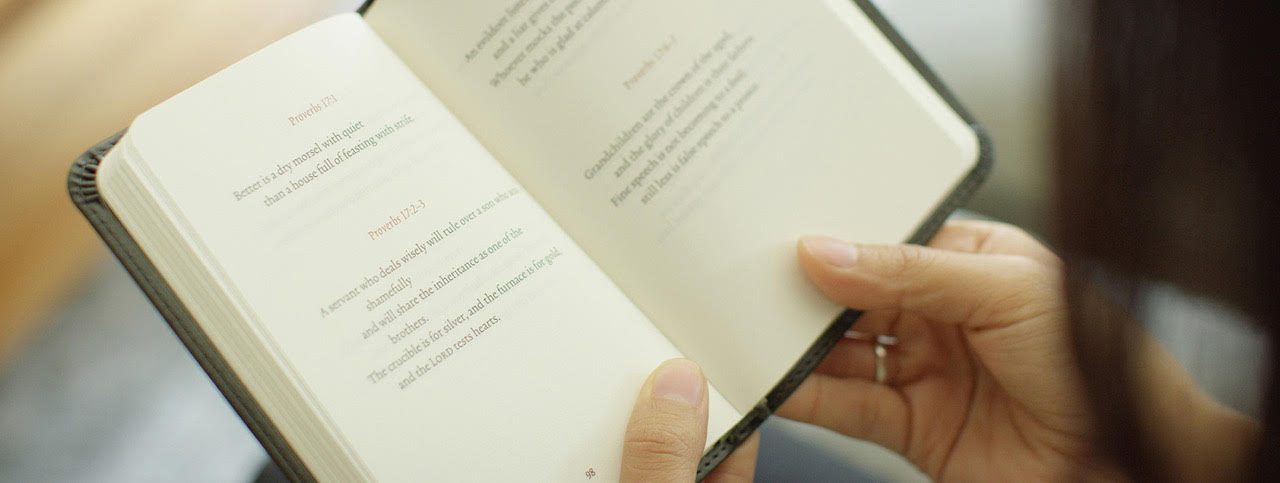 Proverbs 17:1
Better is a dry morsel with quiet
than a house full of feasting with strife.
Proverbs 17:2–3
A servant who deals wisely will rule over a son who acts
shamefully
and will share the inheritance as one of the
brothers.
The crucible is for silver, and the furnace is for gold,
and the LORD tests hearts.
98
An evildoer listens
and a liar gives
Whoever mocks the poor
he who is glad at calamity
Proverbs 17:6–7
Grandchildren are the crown of the aged,
and the glory of children is their fathers.
Fine speech is not becoming to a fool;
still less is false speech to a prince.